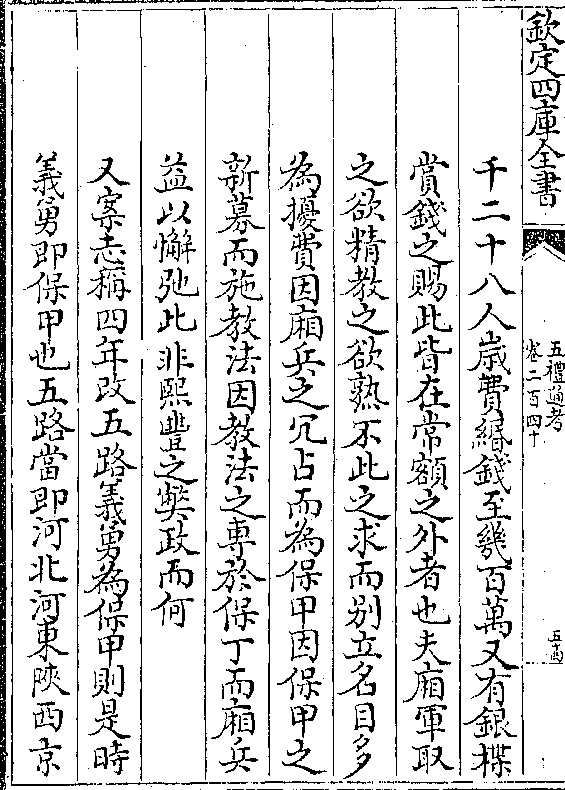 欽定四庫全書
五禮通考
卷二百四十
五十四
千二十八人歳費緡錢至幾百萬又有銀楪
賞錢之賜此皆在常額之外者也夫廂軍取
之欲精教之欲熟不此之求而别立名目多
為擾費因廂兵之冗占而為保甲因保甲之
新募而施教法因教法之專於保丁而廂兵
益以懈弛此非熙豐之弊政而何
又案志稱四年改五路義勇為保甲則是時
義勇即保甲也五路當即河北河東陜西京